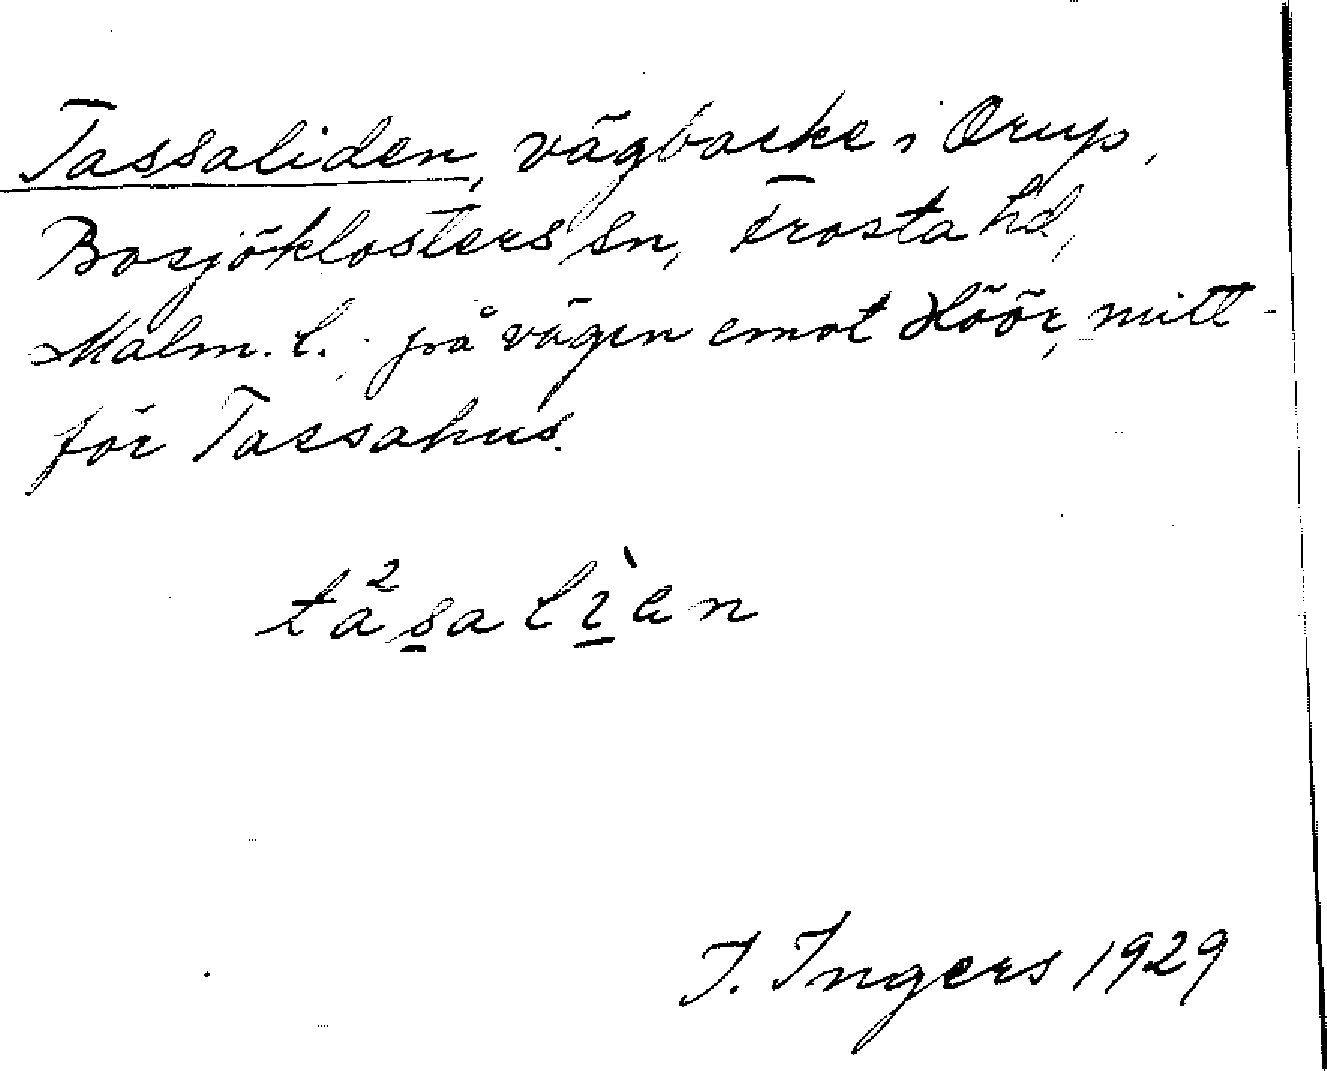 Tassaliden, vägbacke i Orup,
Bosjöklosters sn, Frosta hd,
Malm. l. på vägen emot Höör, mitt-
för Tassahus.
ta²salìen
I. Ingers 1929